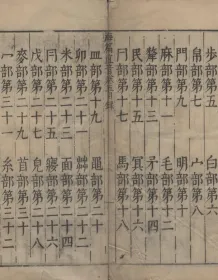 步部第五　白部第六
帛部第七　宀部第八
門部第九　明部第十
麻部第十一　毛部第十二
犛部第十三　矛部第十四
民部第十五　冥部第十六
冃部第十七　馬部第十八
皿部第十九　黽部第二十
卯部第二十一　茻部第二十二
米部第二十三　面部第二十四
部第二十五　部第二十六
戊部第二十七　皃部第二十八
麥部第二十九　首部第三十
部第三十一　糸部第三十二